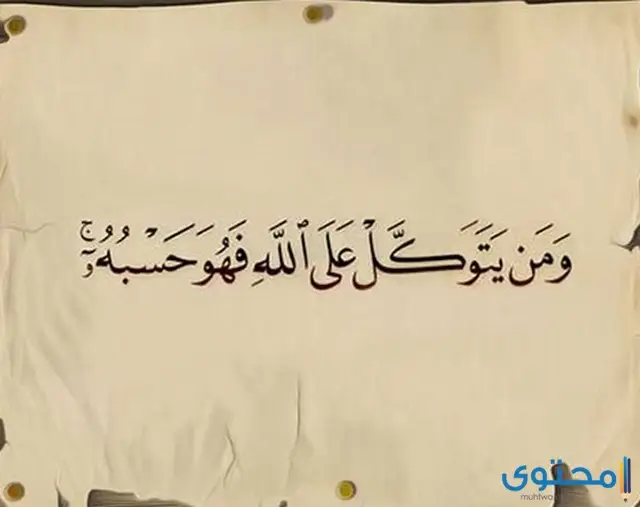 وَمَن يَتَوَكَّلْ عَلَى ٱللَّهِ فَهُوَ حَسْبُهُۥٓ ۚ
محتوى